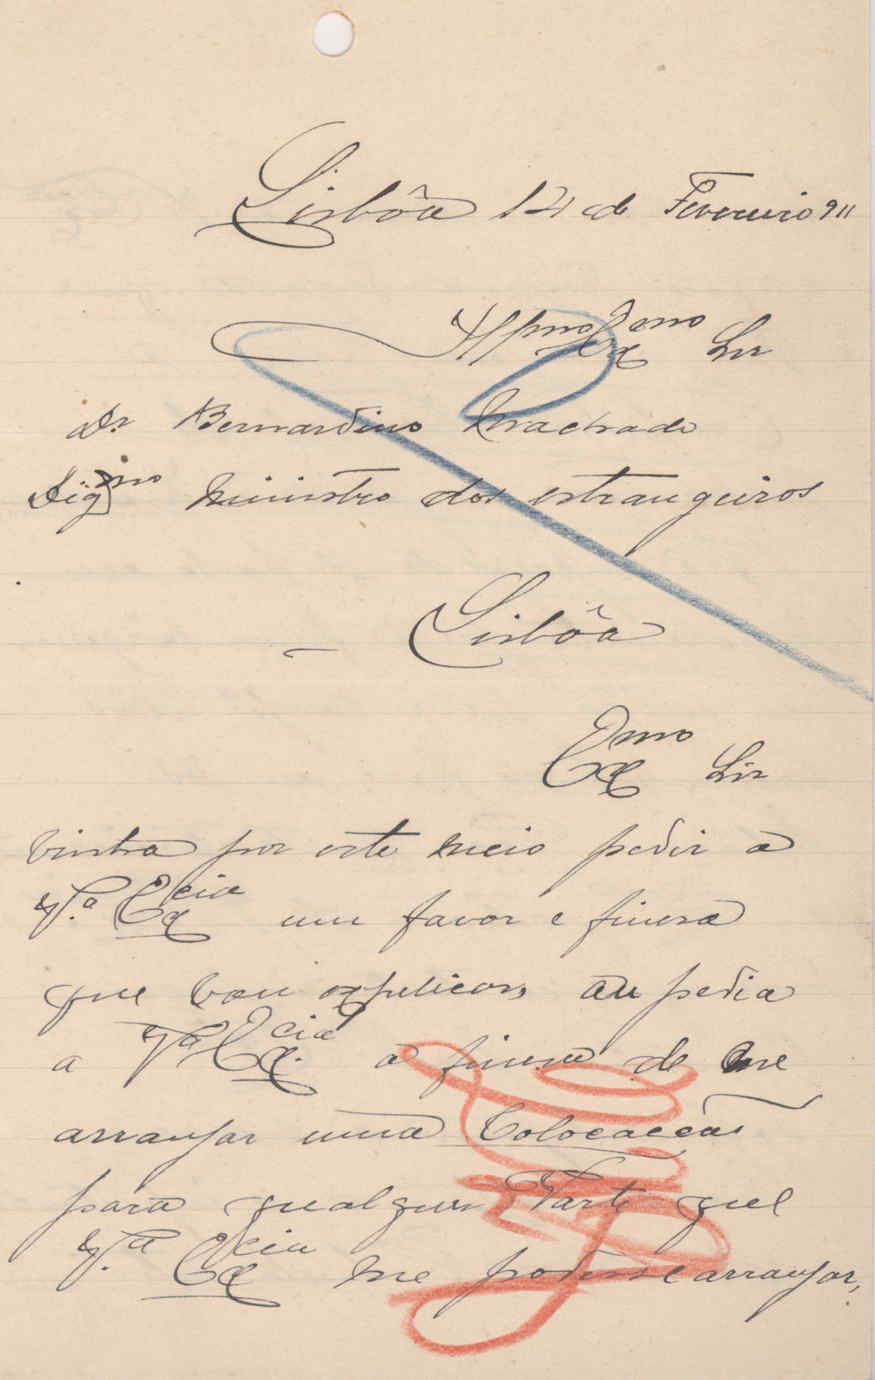 Lisbôa 14 de Fevereiro 911
Illmo Exmo Snr
Dr Bernardino Machado
Digmo Ministro dos estrangeiros
Lisbôa
Exmo Snr
Vinha por este meio pedir a
Vª Excia um favor e finesa
que vou expelicar, au pedia
a Vª Excia a finesa de me
arranjar uma Colocacção
para qualquer Parte quel
Vª Excia me podesse arranjar,